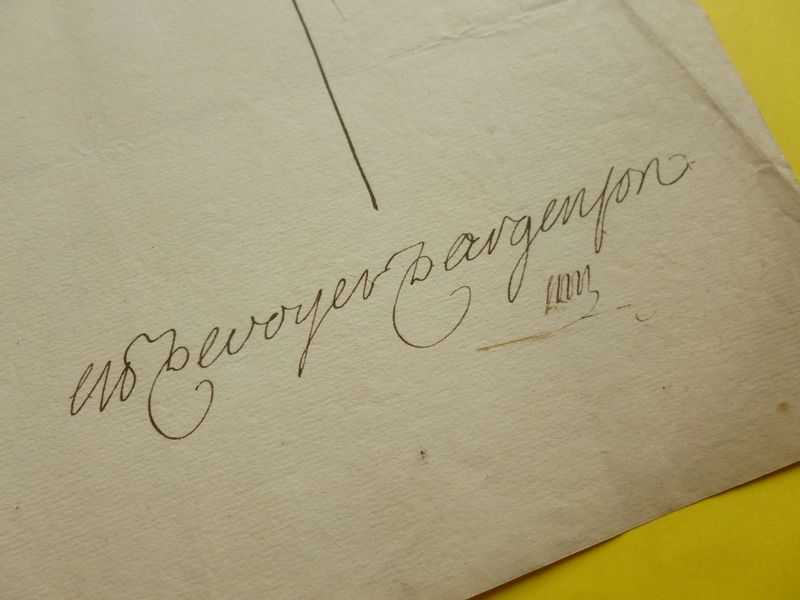 Devoyer Dargenson